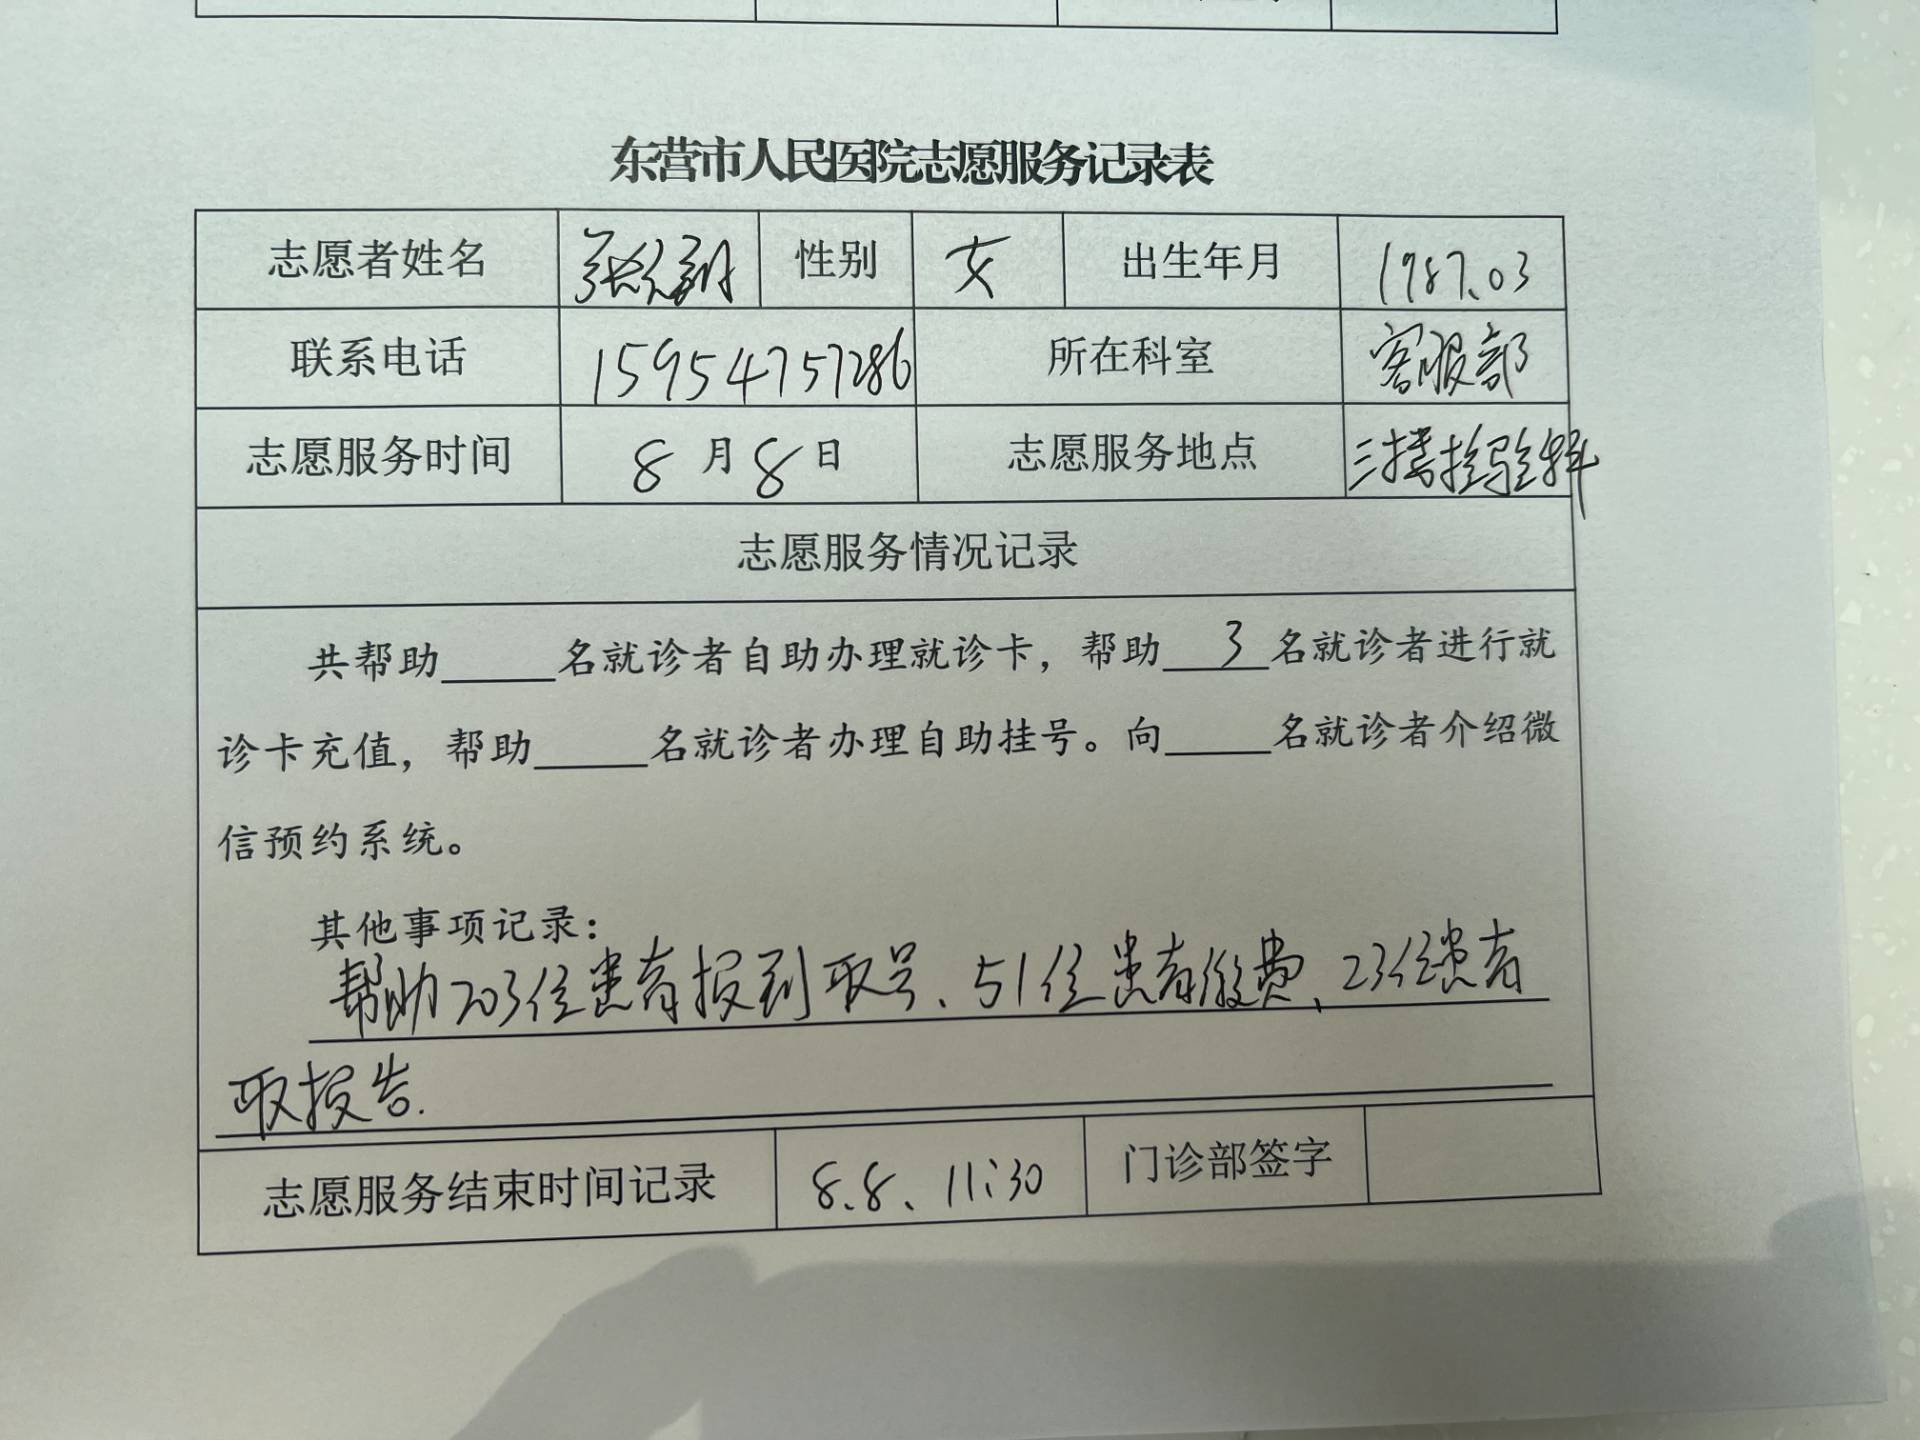 东营市人民医院志愿服务记录表
志愿者姓名 张 性别 女 出生年月 1987.03
联系电话 15954757286 所在科室 客服部
志愿服务时间 8月8日 志愿服务地点 三楼检验科
志愿服务情况记录
共帮助_____名就诊者自助办理就诊卡，帮助__3__名就诊者进行就
诊卡充值，帮助_____名就诊者办理自助挂号。向_____名就诊者介绍微
信预约系统。
其他事项记录：
帮助203位患者报到取号、51位患者缴费、23位患者
取报告.
志愿服务结束时间记录 8.8、11:30 门诊部签字